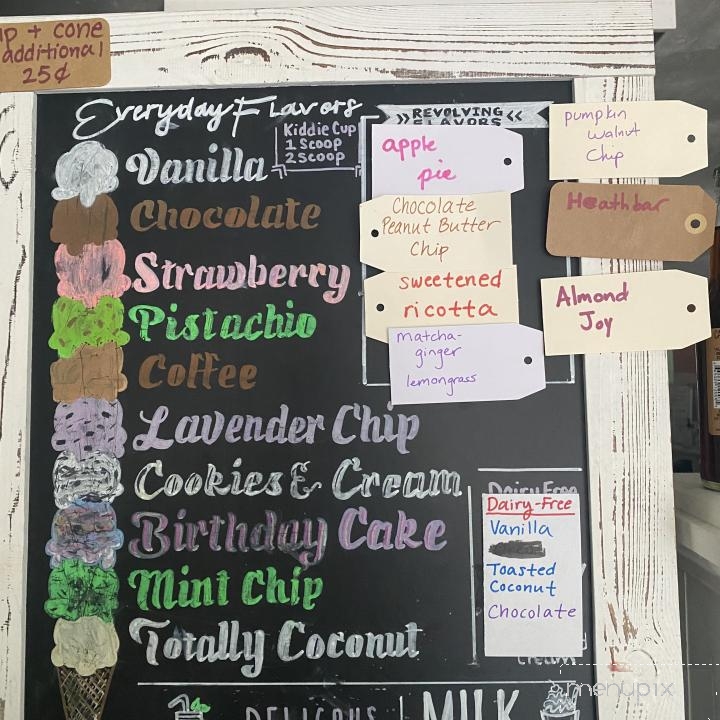 + cone
additional
25¢
Everyday Flavors
Kiddie Cup
1 Scoop
2 Scoop
Vanilla
Chocolate
Strawberry
Pistachio
Coffee
Lavender Chip
Cookies & Cream
Birthday Cake
Mint Chip
Totally Coconut
REVOLVING
FLAVORS
apple
pie
Chocolate
Peanut Butter
Chip
sweetened
ricotta
matcha-
ginger
lemongrass
pumpkin
walnut
Chip
Heathbar
Almond
Joy
Dairy Free
Dairy-Free
Vanilla
Toasted
Coconut
Chocolate
DELICIOUS
MILK
menupix